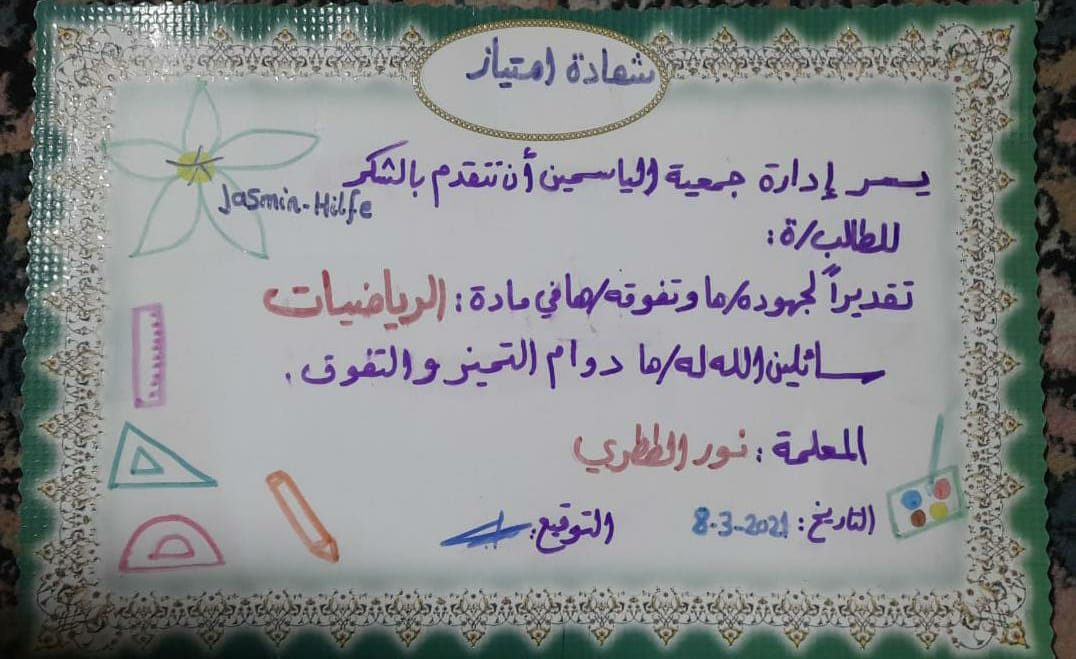 شهادة امتياز
يسر إدارة جمعية الياسمين أن تتقدم بالشكر
Jasmin-Hilfe
للطالب/ة:
تقديراً لجهوده/ها وتفوقه/ها في مادة: الرياضيات
سائلين الله له/ها دوام التميز والتفوق.
المعلمة: نور الططري
التاريخ: 8-3-2021
التوقيع: